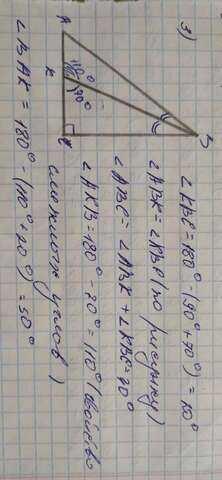 3)
A
K
110°
70°
C
B
∠KBC = 180° - (90° + 70°) = 20°
∠ABK = ∠KBC (по рисунку)
∠ABC = ∠ABK + ∠KBC = 40°
∠AKB = 180° - 70° = 110° (свойство
смежных углов)
∠BAK = 180° - (110° + 20°) = 50°